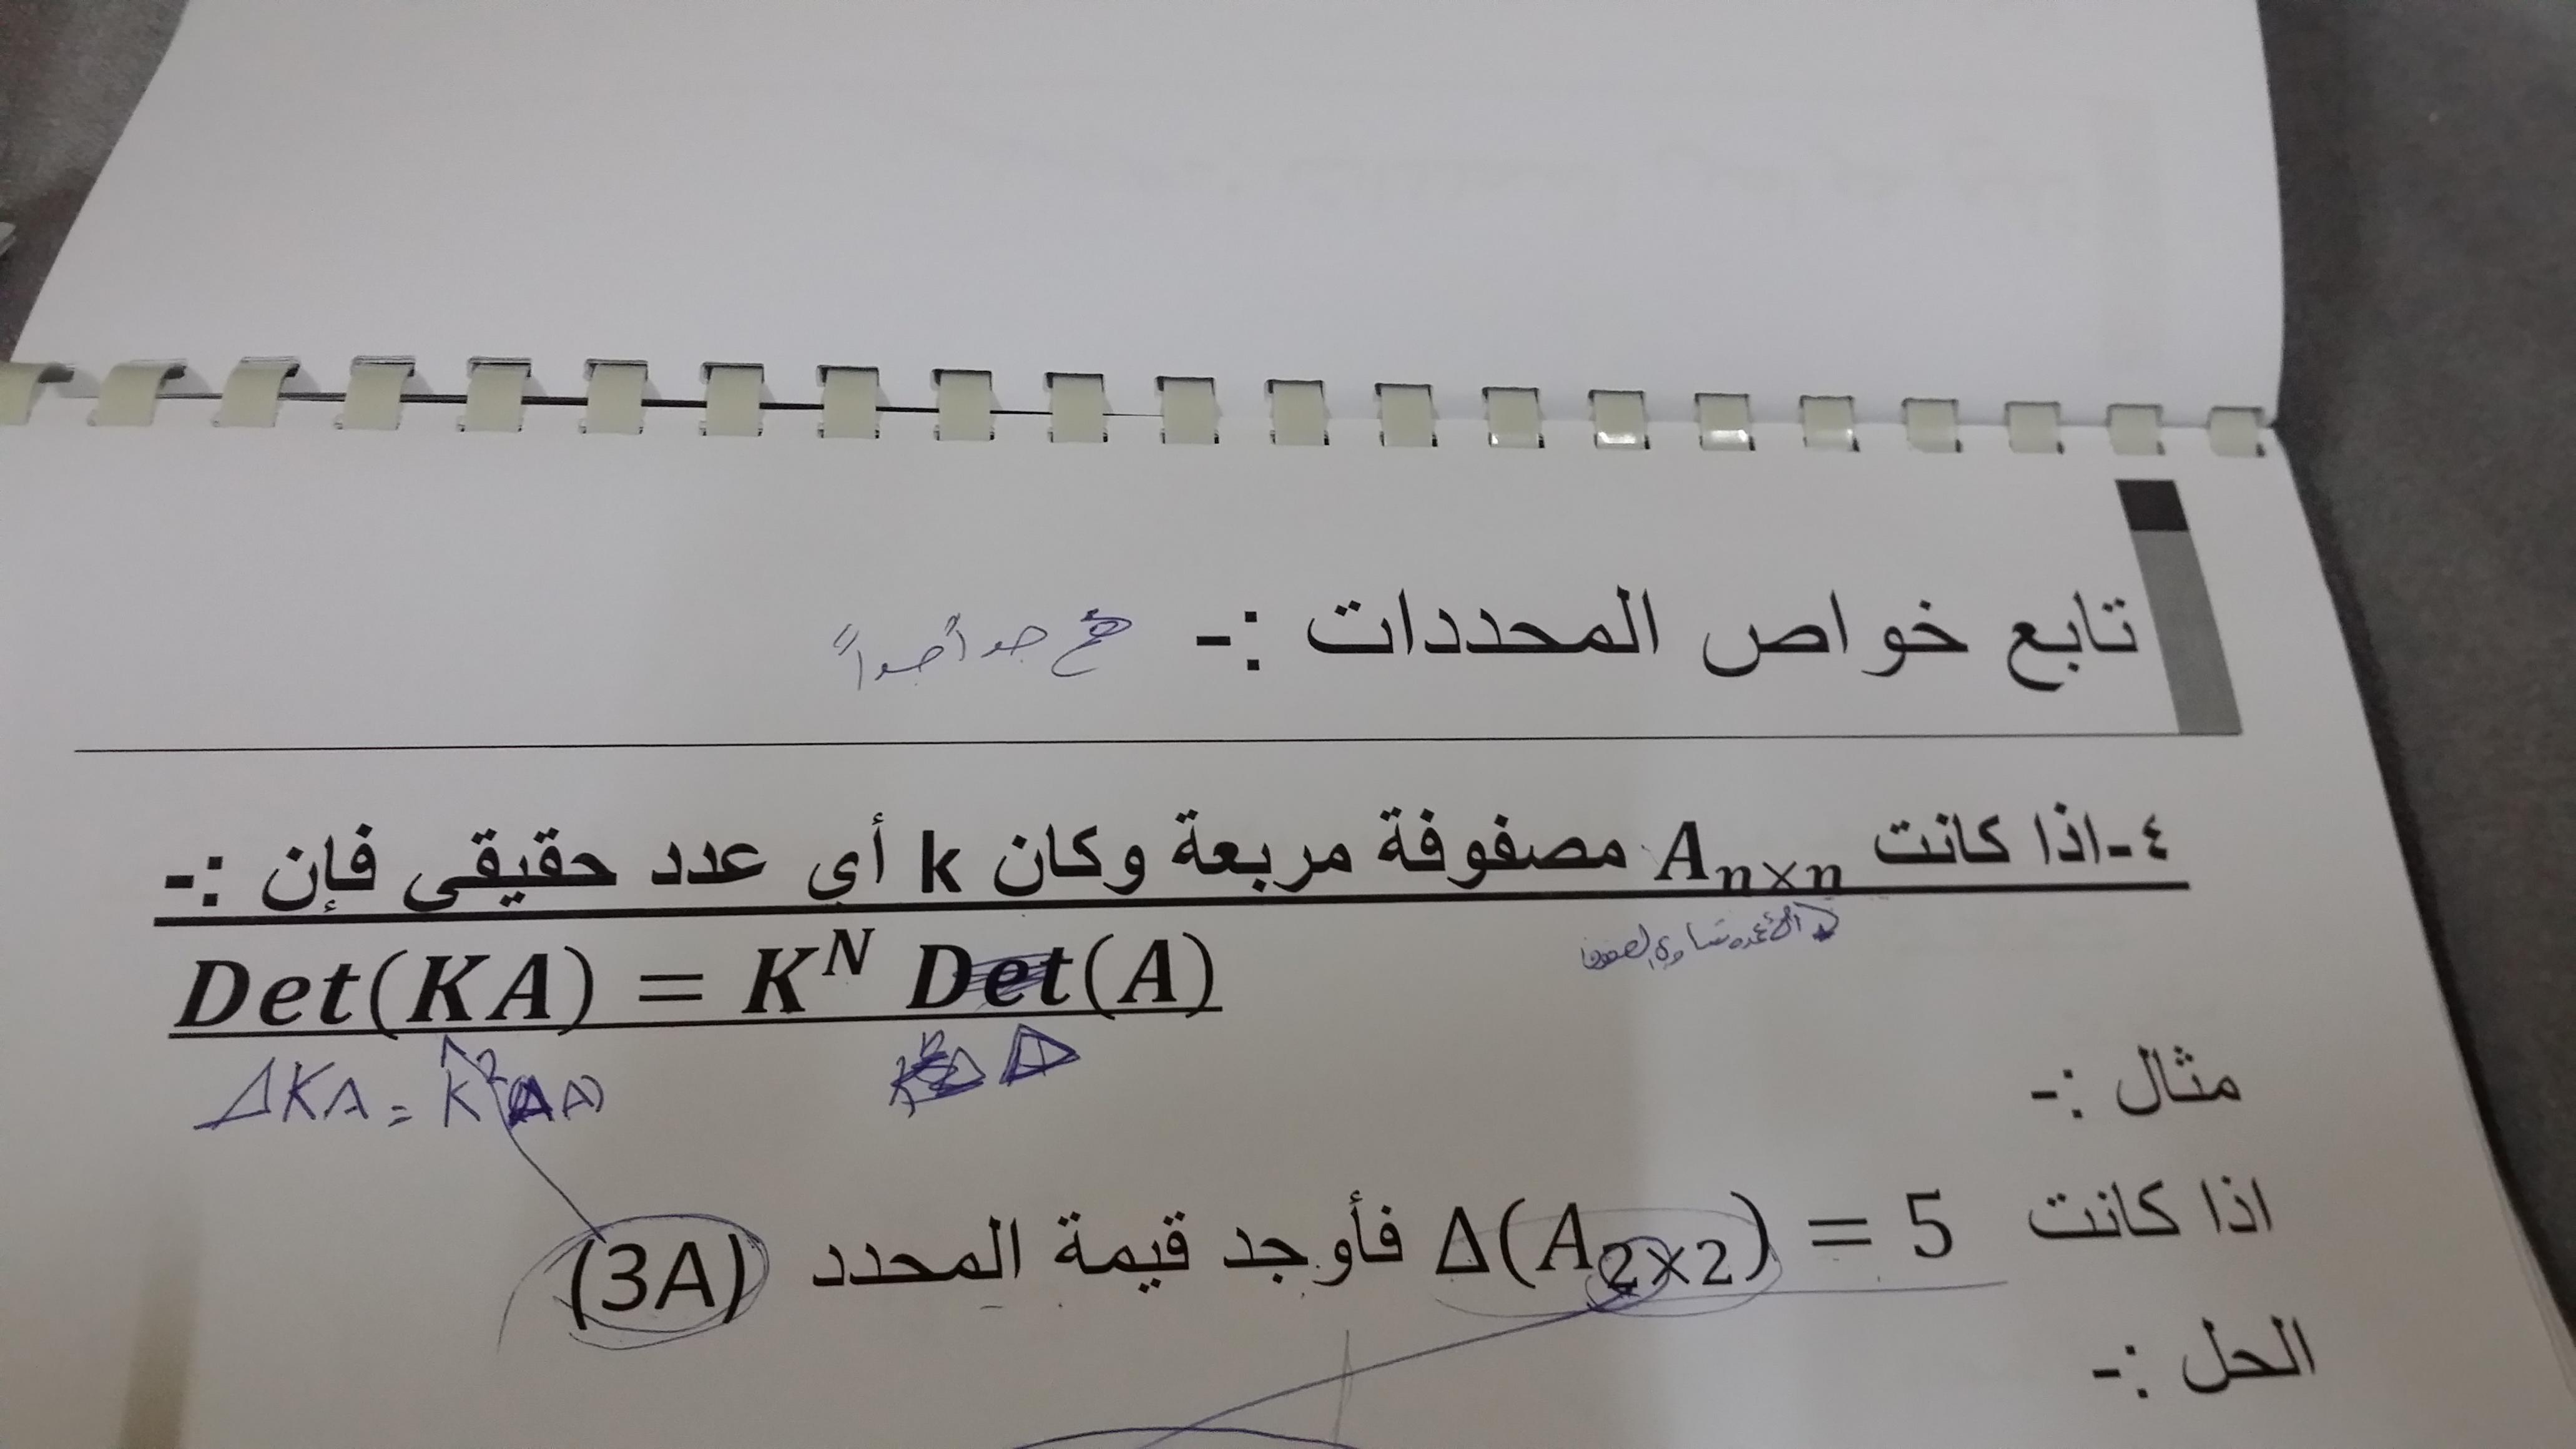 تابع خواص المحددات :- جداً جداً
٤-اذا كانت A_{n×n} مصفوفة مربعة وكان k أي عدد حقيقي فإن :-
الأعمدة تساوي الصفوف
Det(KA) = K^N Det(A)
ΔKA = K²(ΔA)
مثال :-
اذا كانت Δ(A_{2×2}) = 5 فأوجد قيمة المحدد (3A)
الحل :-